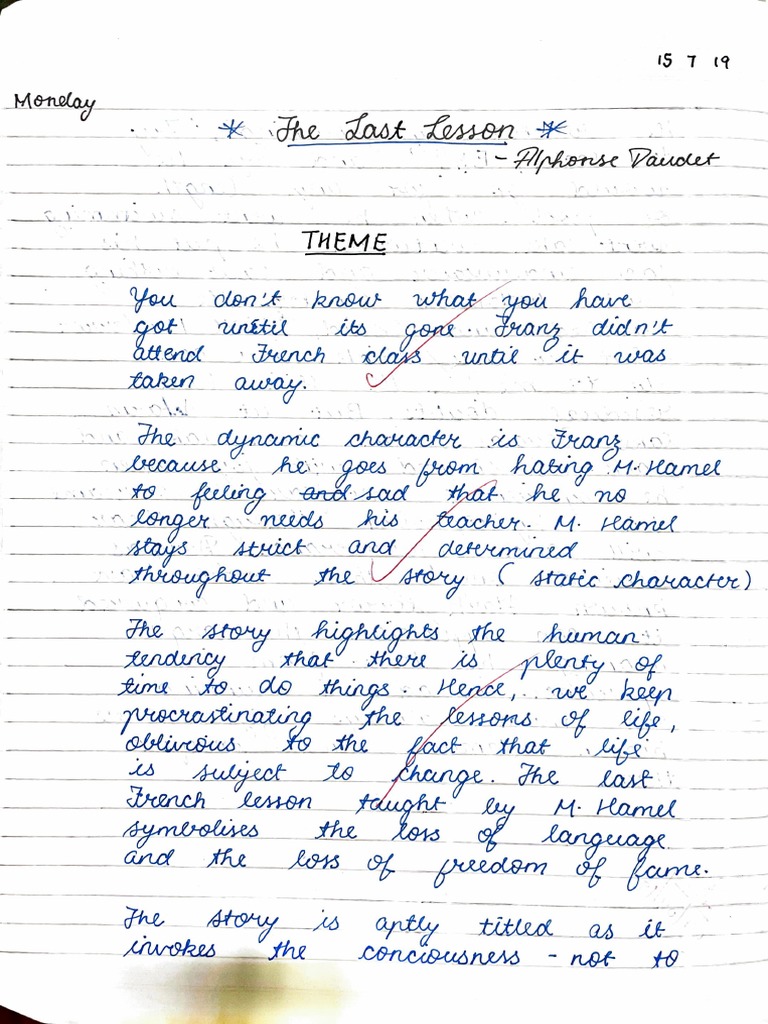 15 7 19
Monday
* The Last Lesson *
- Alphonse Daudet
THEME
You don't know what you have
got until its gone. Franz didn't
attend French class until it was
taken away.
The dynamic character is Franz
because he goes from hating M. Hamel
to feeling and sad that he no
longer needs his teacher. M. Hamel
stays strict and determined
throughout the story (static character)
The story highlights the human
tendency that there is plenty of
time to do things. Hence, we keep
procrastinating the lessons of life,
oblivious to the fact that life
is subject to change. The last
French lesson taught by M. Hamel
symbolises the loss of language
and the loss of freedom of fame.
The story is aptly titled as it
invokes the conciousness - not to